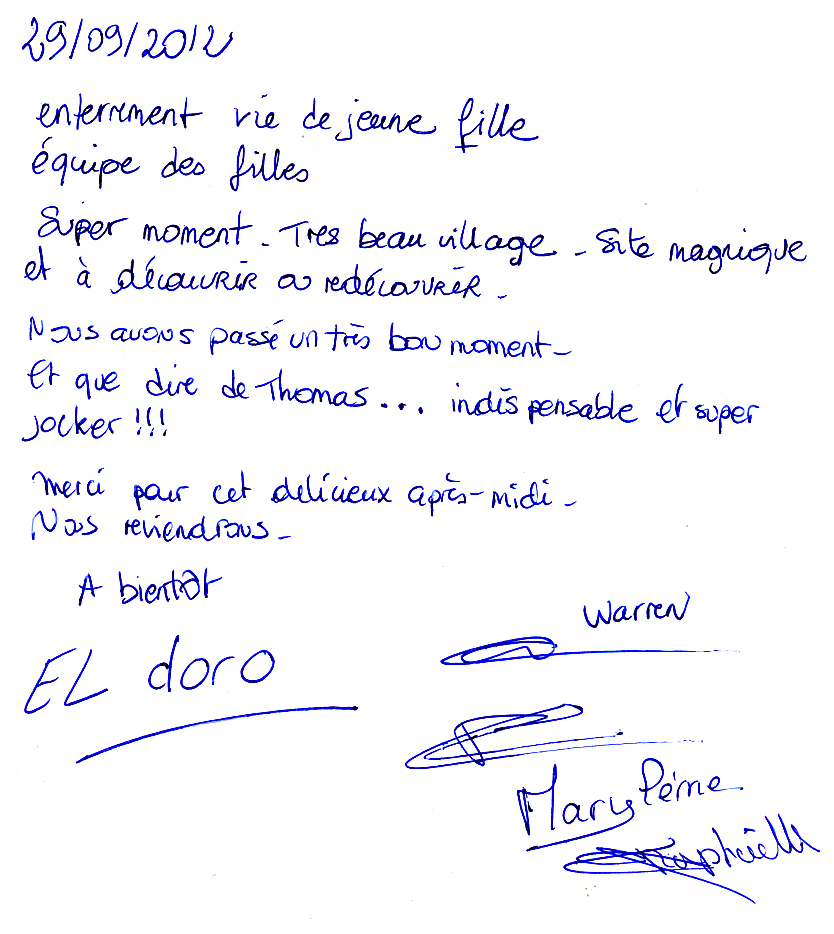 29/09/2012
enterrement vie de jeune fille
équipe des filles
Super moment - Tres beau village - Site magnique
et à découvrir ou redécouvrir -
Nous avons passé un très bon moment -
Et que dire de Thomas... indispensable et super
jocker !!!
Merci pour cet delicieux après-midi -
Nous reviendrons -
A bientôt
Warren
EL doro
Mary